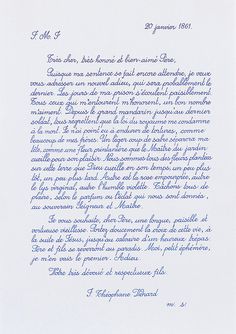 20 janvier 1861.
J. M. J
Très cher, très honoré et bien-aimé Père,
Puisque ma sentence se fait encore attendre, je veux
vous adresser un nouvel adieu, qui sera probablement le
dernier. Les jours de ma prison s'écoulent paisiblement.
Tous ceux qui m'entourent m'honorent, un bon nombre
m'aiment. Depuis le grand mandarin jusqu'au dernier
soldat, tous regrettent que la loi du royaume me condamne
à la mort. Je n'ai point eu à endurer de tortures, comme
beaucoup de mes frères. Un léger coup de sabre séparera ma
tête, comme une fleur printanière que le Maître du jardin
cueille pour son plaisir. Nous sommes tous des fleurs plantées
sur cette terre que Dieu cueille en son temps, un peu plus
tôt, un peu plus tard. Autre est la rose empourprée, autre
le lys virginal, autre l'humble violette. Tâchons tous de
plaire, selon le parfum ou l'éclat qui nous sont donnés,
au souverain Seigneur et Maître.
Je vous souhaite, cher Père, une longue, paisible et
vertueuse vieillesse. Portez doucement la croix de cette vie, à
la suite de Jésus, jusqu'au calvaire d'un heureux trépas.
Père et fils se reverront au paradis. Moi, petit éphémère,
je m'en vais le premier. Adieu.
Votre très dévoué et respectueux fils.
J. Théophane Vénard